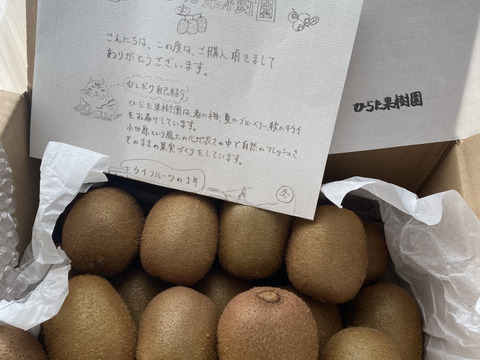 こんにちは。この度は、ご購入頂きまして
ありがとうございます。
むしだり自己紹介
ひらた果樹園は、春の梅、夏のブルーベリー、秋のキウイ
をお届けしています。
小田原という風土の中で自然のフレッシュさ
そのままの果実づくりをしています。
キウイフルーツの1年
冬
ひらた果樹園